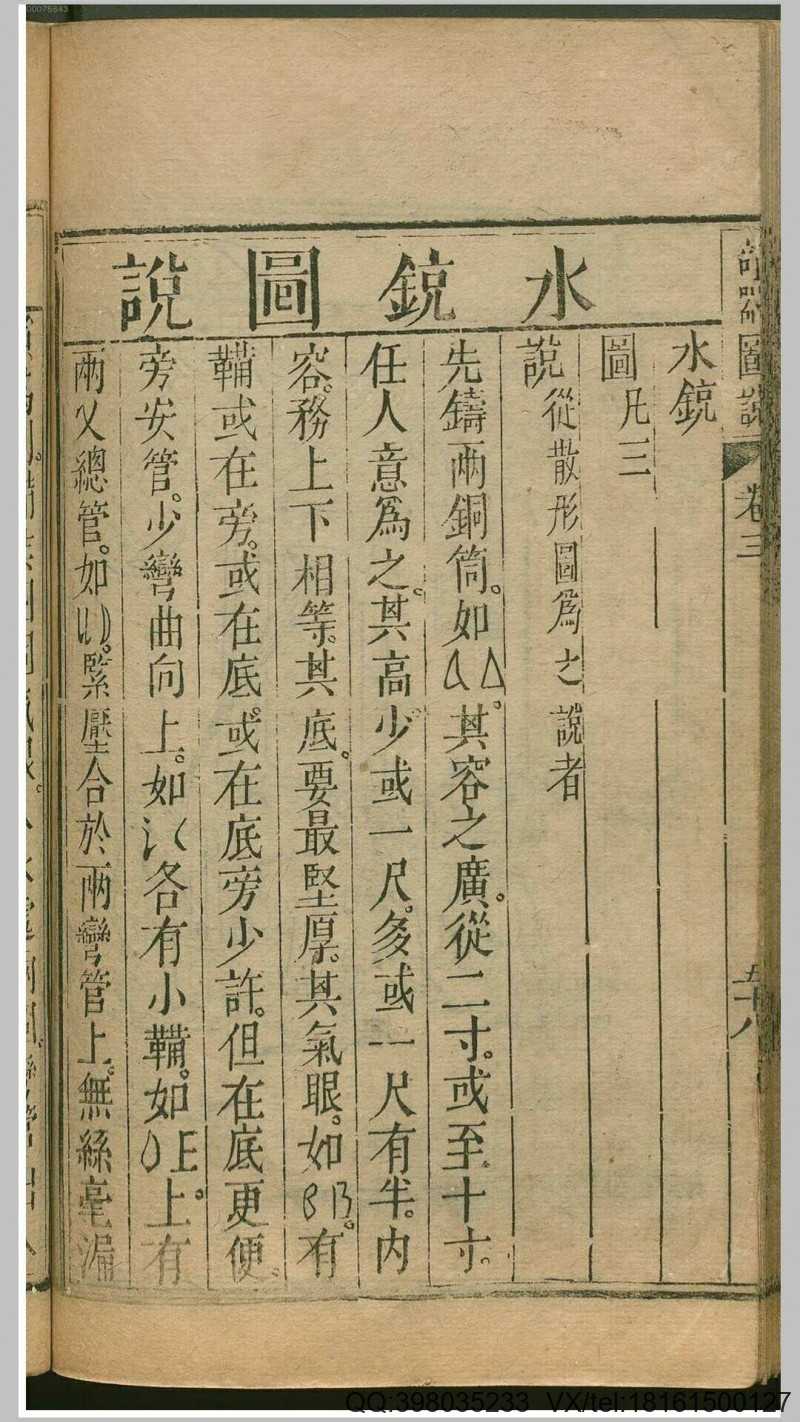 00075643
水銃圖說
奇器圖說 卷三 五十八
水銃
圖凡三
說從散形圖爲之說者
先鑄兩銅筒。如A△。其容之廣。從二寸。或至十寸。
任人意爲之。其高少或一尺。多或一尺有半。內
容。務上下相等。其底。要最堅厚。其氣眼。如BB。有
鞴或在旁。或在底。或在底旁少許。但在底更便
旁安管。少彎曲向上。如各有小鞴。如上。有
兩乂總管。如緊壓合於兩彎管上。無絲毫漏
QQ:398035233 VX/tel:18161500127